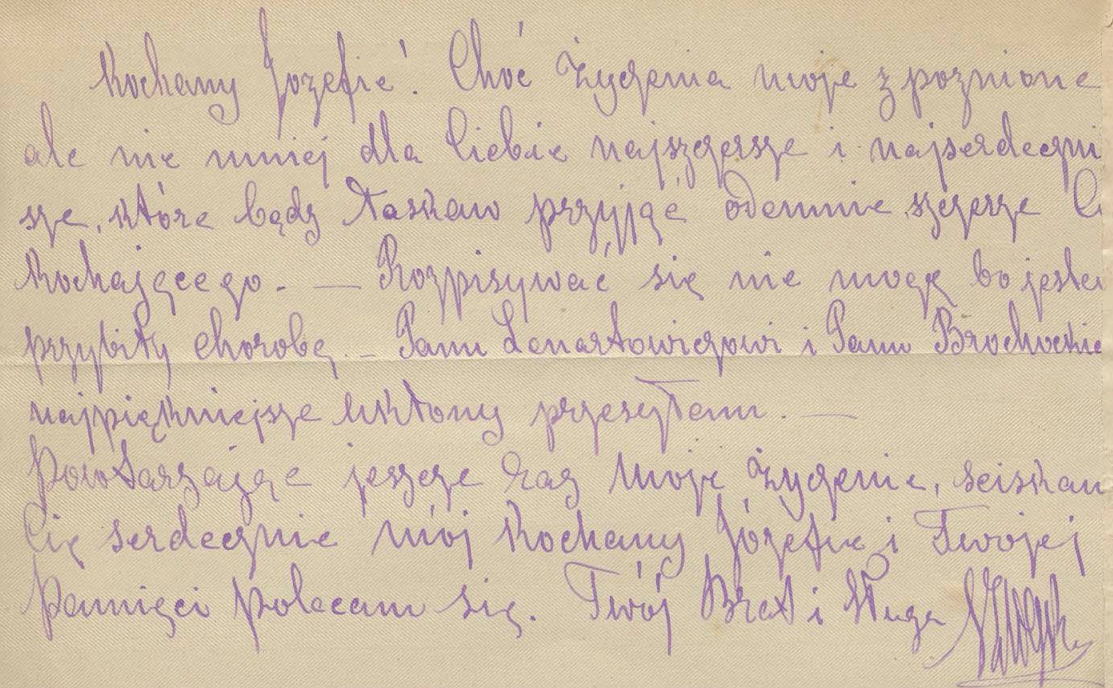 Kochany Józefie! Choć życzenia moje zpoznione
ale nie mniej dla Ciebie najszczersze i najserdeczni
sze, które bądz łaskaw przyjąć odemnie szczerze C
Kochającego. — Rozpisywać się nie mogę bo jeste
przybity chorobą. — Panu Lenartowiczowi i Panu Brochockie
najpiękniejsze Ukłony przesyłam. —
Powtarzając jeszcze raz moje życzenie, sciskam
Cię serdecznie mój Kochany Józefie i Twojej
Pamięci polecam się. Twój Brat i Sługa